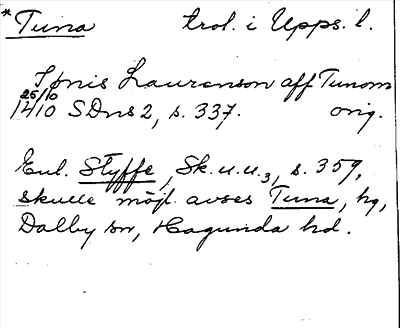 * Tuna trol. i Upps. l.
Jønis Laurenson aff Tunom
25/10
1410 SDns 2, s. 337. orig.
Enl. Styffe, Sk. u. u. 3, s. 359,
skulle möjl. avses Tuna, hg,
Dalby sn, Hagunda hd.